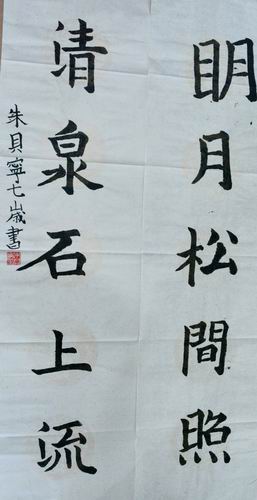 明月松間照
清泉石上流
朱貝寧七歲書